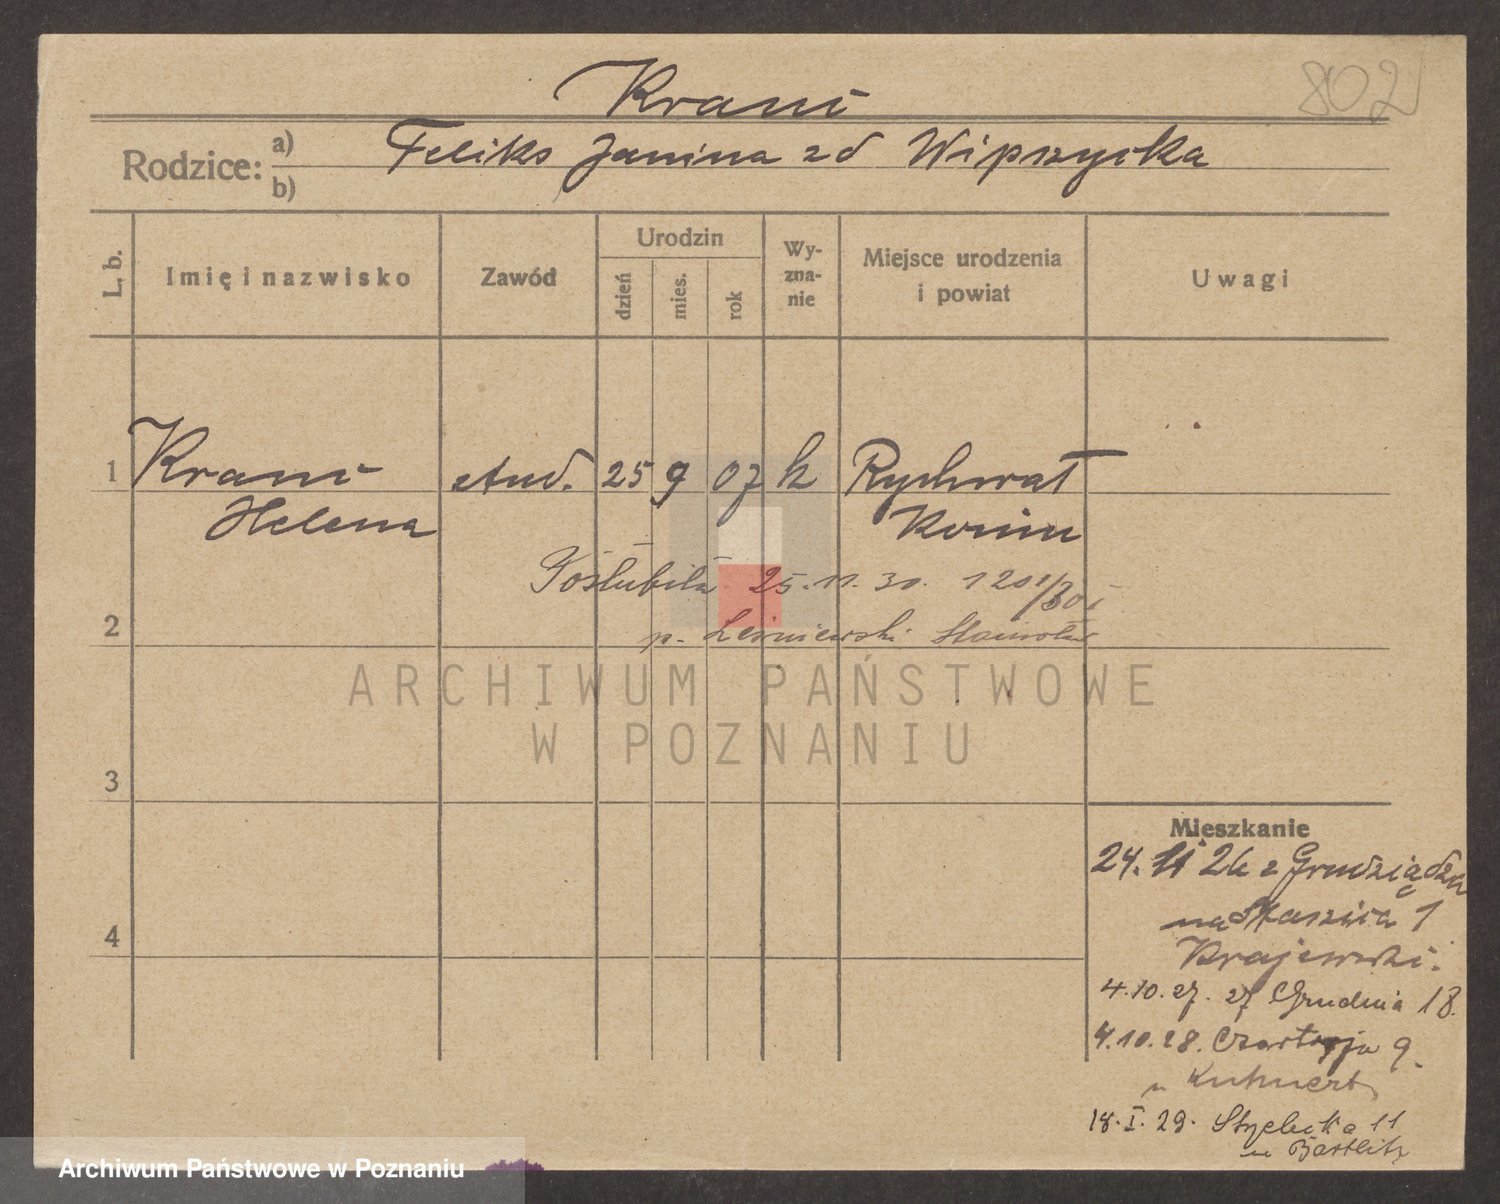 802
Krani
Rodzice: a) b)
Feliks Janina zd Wipszycka
L. b.
Imię i nazwisko
Zawód
Urodzin
dzień
mies.
rok
Wy-
zna-
nie
Miejsce urodzenia
i powiat
Uwagi
1 Krani stud. 25 9 07 k Rychwał
Helena Konin
Poślubiła 25.11.30.
2 p. Leśniewski Stanisław
ARCHIWUM PAŃSTWOWE
W POZNANIU
3
4
Mieszkanie
24. 11 26 z Grudziądza
na Staszica 1
Krajewski.
4.10.27. 27 Grudnia 18.
4.10.28. Czartorja 9.
u Kuhnert
18. I. 29. 11
u Bartlitz
Archiwum Państwowe w Poznaniu